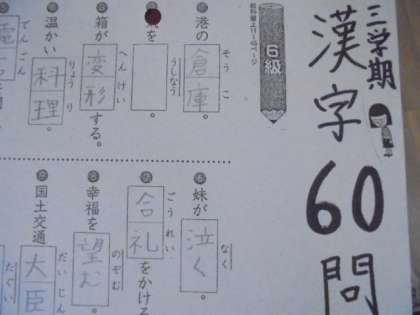 三学期
漢字60問
6級
港の倉庫。
そうこ
を。
うしなう
箱が変形する。
へんけい
温かい料理
りょうり
でんごん
妹が泣く。
なく
号礼をかける
ごうれい
幸福を望む。
のぞむ
国土交通大臣
だいじん